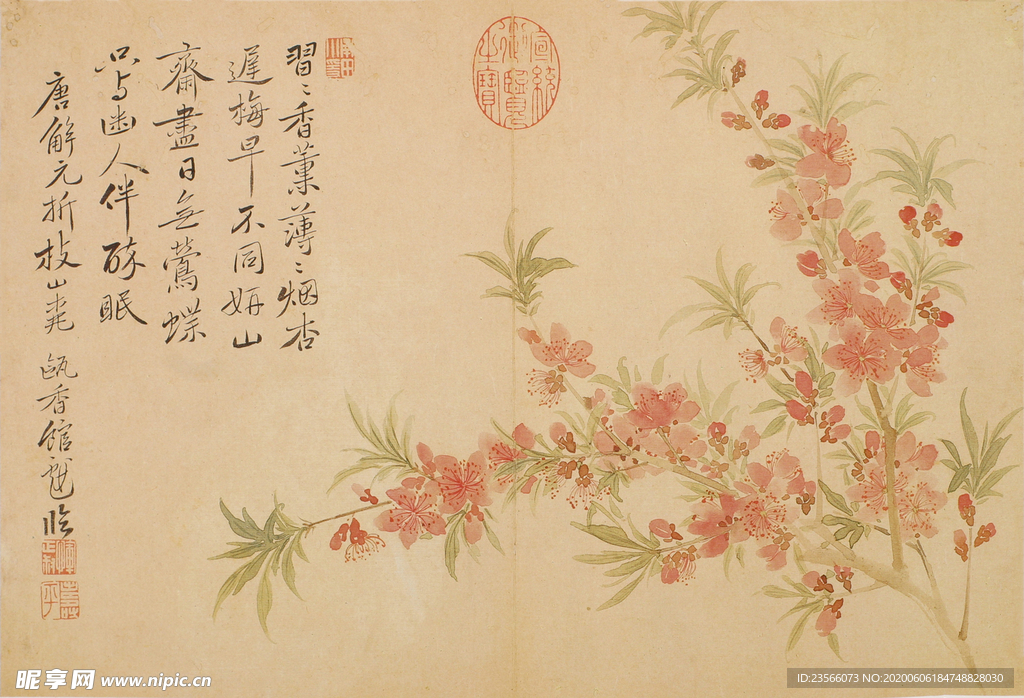 習〻香薰薄〻烟杏
遲梅早不同妍山
齋盡日無鶯蝶
只与幽人伴醉眠
唐解元折枝山桃
甌香館壽平臨
宣統御覽之寶
昵享网 www.nipic.cn
ID:23566073 NO:20200606184748828030